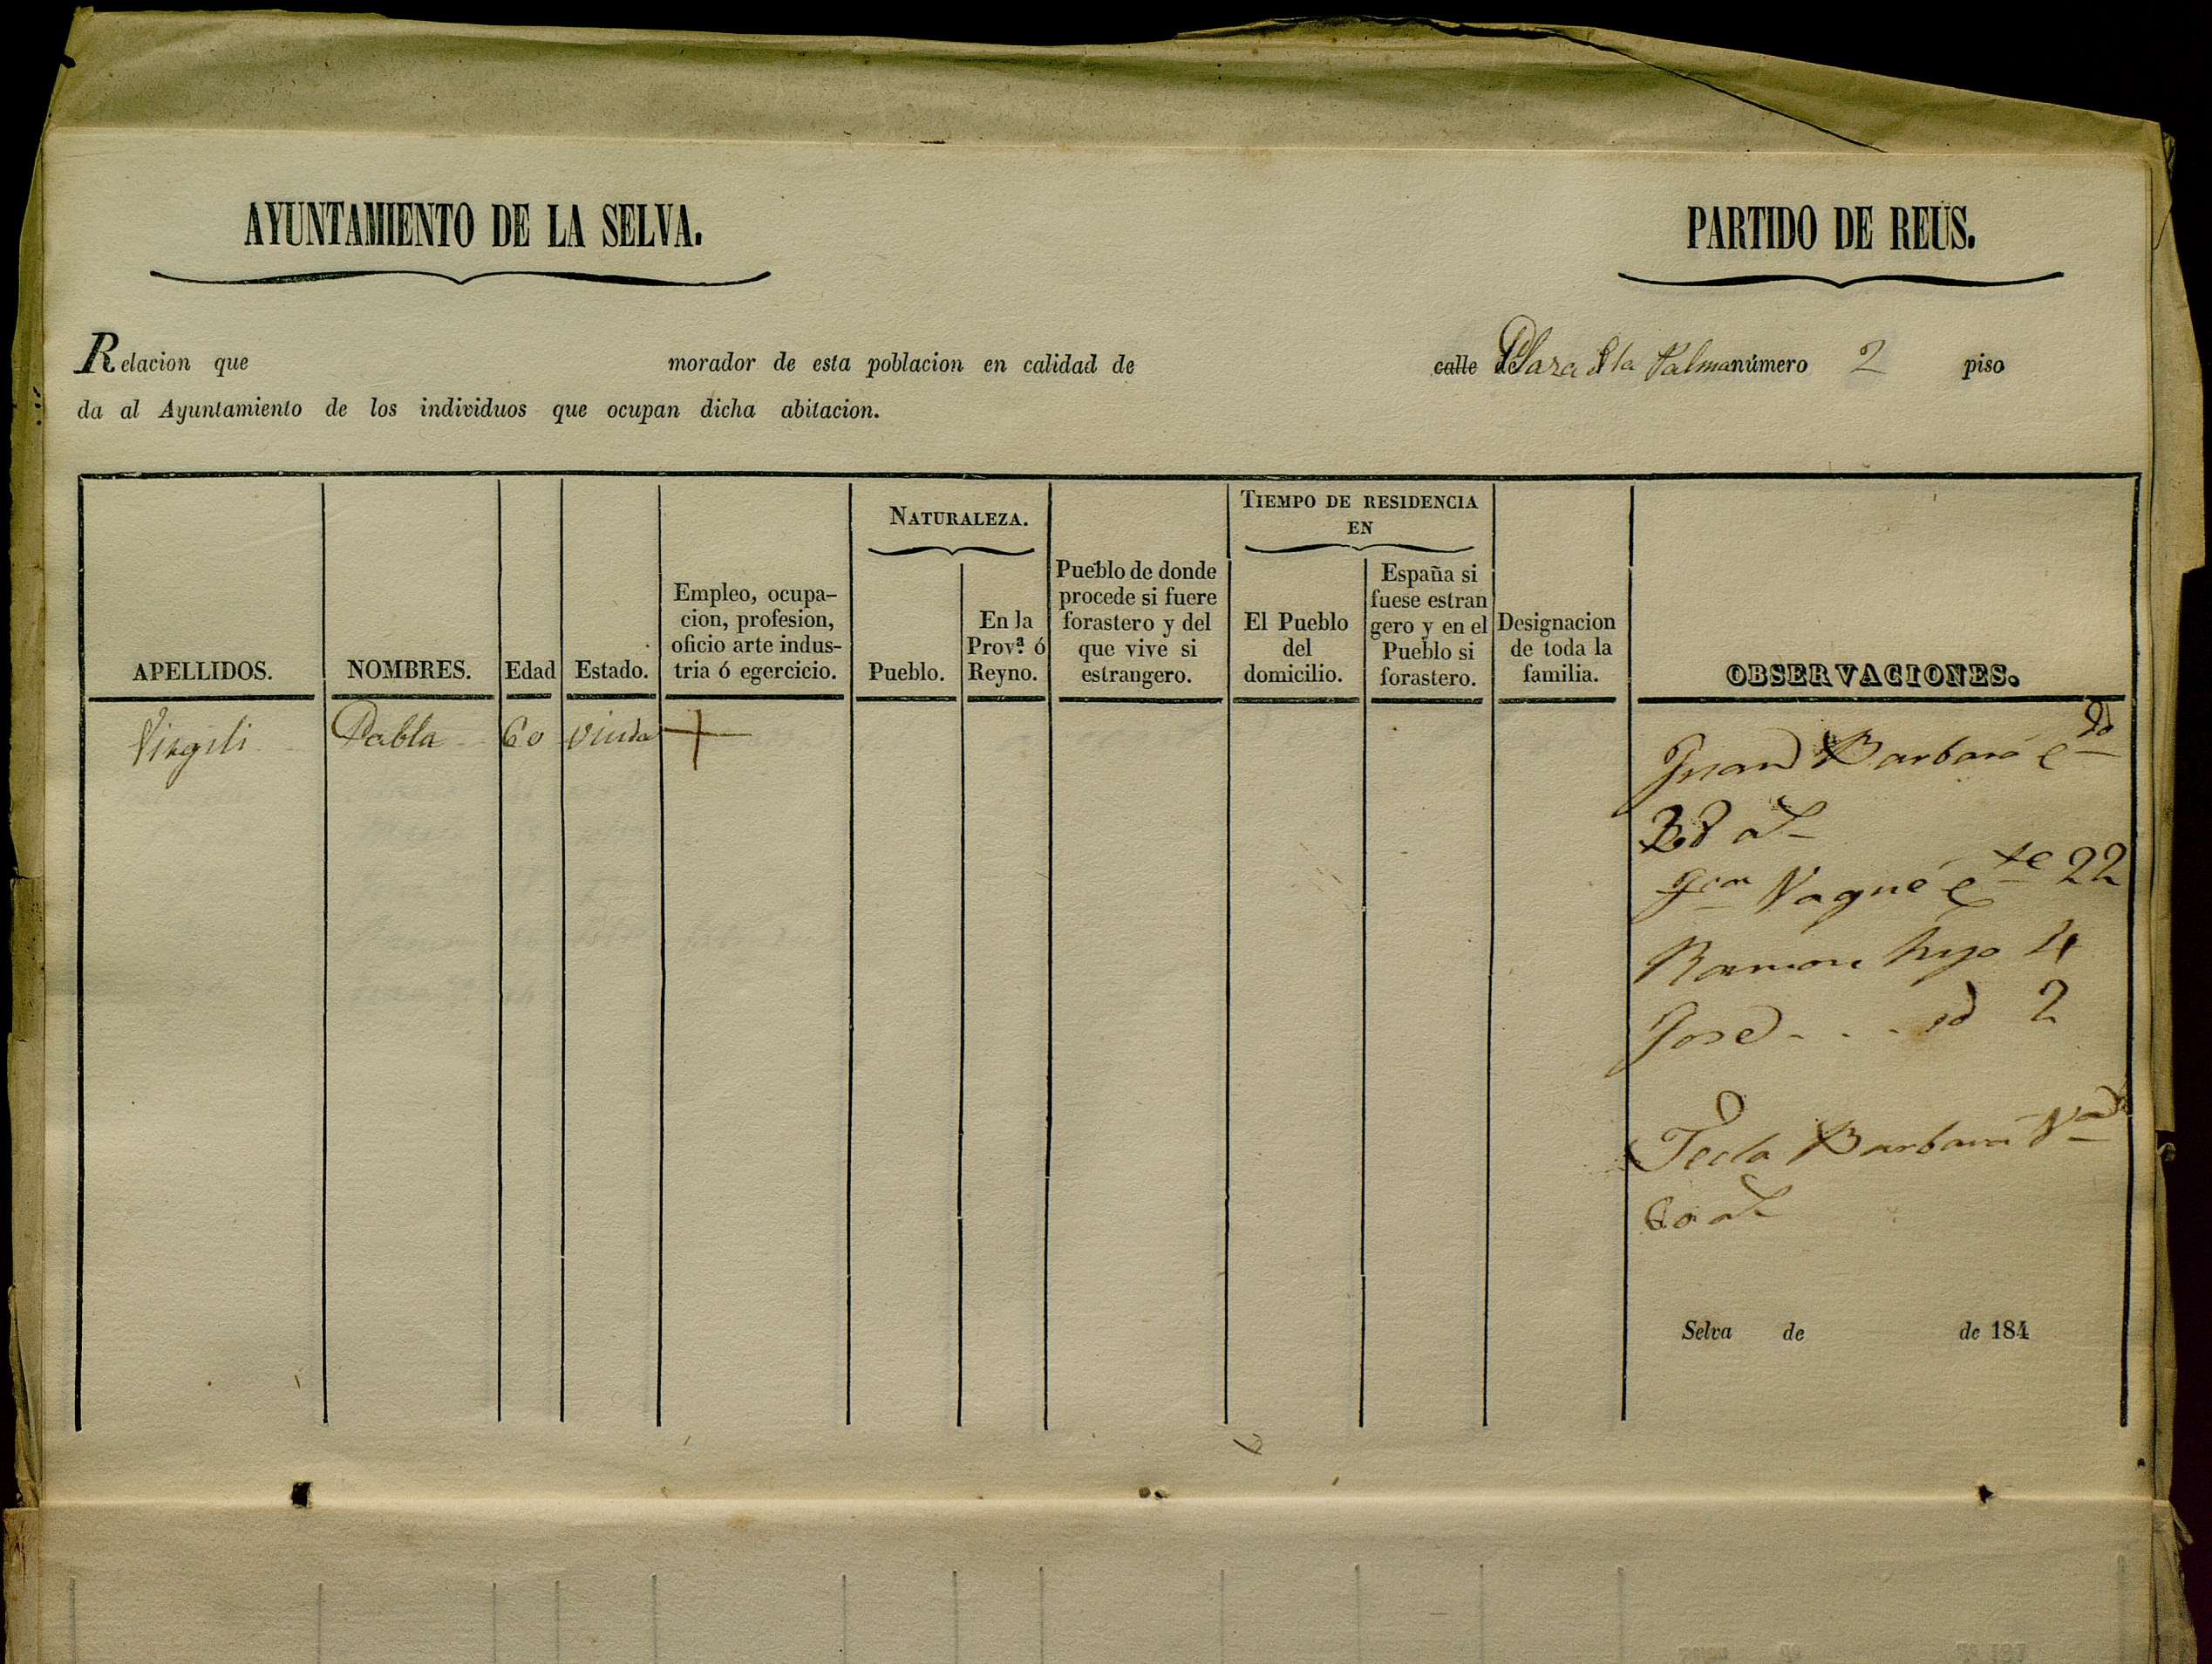 AYUNTAMIENTO DE LA SELVA.
PARTIDO DE REUS.
Relacion que morador de esta poblacion en calidad de calle de Plaza d la Palma número 2 piso
da al Ayuntamiento de los individuos que ocupan dicha abitacion.
APELLIDOS.
NOMBRES.
Edad
Estado.
Empleo, ocupa-
cion, profesion,
oficio arte indus-
tria ó egercicio.
NATURALEZA.
Pueblo.
En la
Prov.ª ó
Reyno.
Pueblo de donde
procede si fuere
forastero y del
que vive si
estrangero.
TIEMPO DE RESIDENCIA
EN
El Pueblo
del
domicilio.
España si
fuese estran
gero y en el
Pueblo si
forastero.
Designacion
de toda la
familia.
OBSERVACIONES.
Virgili Pabla 60 viuda
Juan Barbará c.do
Vagué c.te 22
Ramon hijo 4
José . . . id 2
Tecla Barbará V.a
60 a.s
Selva de de 184